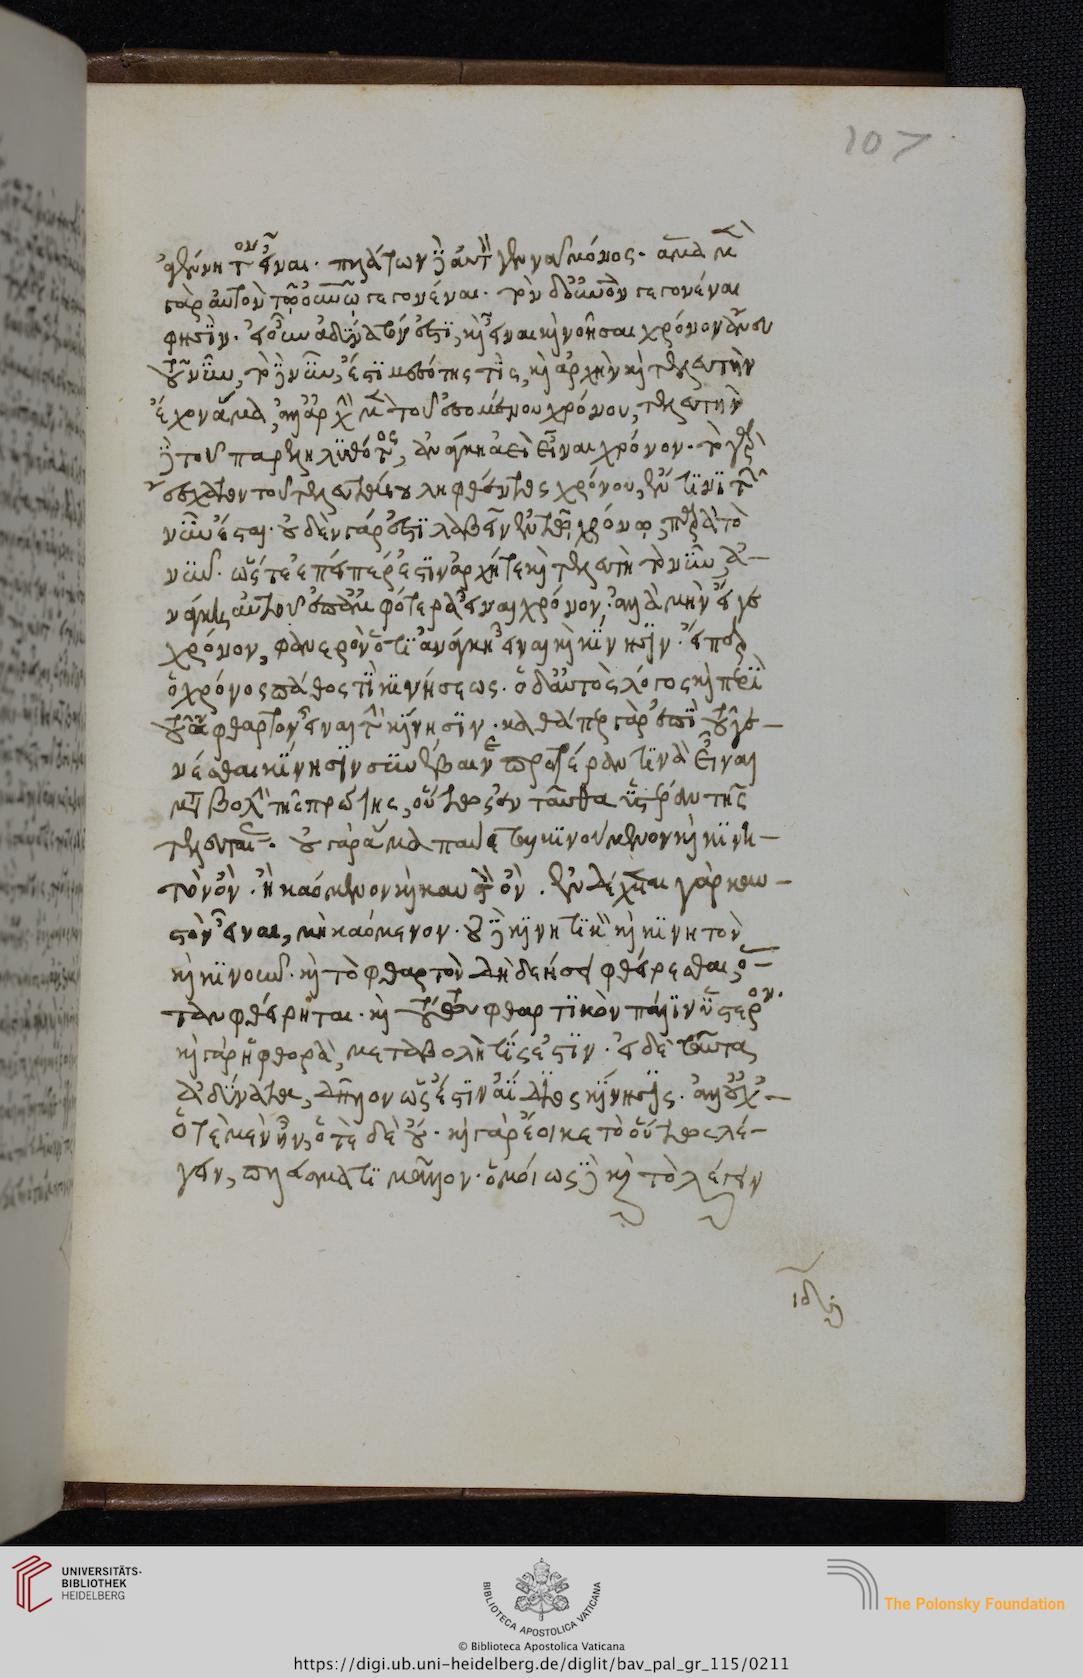 107
ἀγένητον εἶναι. πλάτων δ' αὐτὸν γεννᾷ μόνος. ἅμα μὲν
γὰρ αὐτὸν τῷ οὐρανῷ γεγονέναι. τὸν δ' οὐρανὸν γεγονέναι
φησίν. εἰ οὖν ἀδύνατόν ἐστι, καὶ εἶναι καὶ νοῆσαι χρόνον ἄνευ
τοῦ νῦν, τὸ δὲ νῦν, ἐστὶ μεσότης τὶς, καὶ ἀρχὴν καὶ τελευτὴν
ἔχον ἅμα, ἀλλ' ἀρχὴν μὲν τοῦ ἐσομένου χρόνου, τελευτὴν
δὲ τοῦ παρελθόντος, ἀνάγκη ἀεὶ εἶναι χρόνον. τὸ γὰρ
ἔσχατον τοῦ τελευταίου ληφθέντος χρόνου, ἔν τινι τῶν
νῦν ἔσται. οὐδὲν γάρ ἐστι λαβεῖν ἐν τῷ χρόνῳ παρὰ τὸ
νῦν. ὥστε ἐπείπερ ἐστὶν ἀρχή τε καὶ τελευτὴ τὸ νῦν, ἀ-
νάγκη αὐτοῦ ἐπ' ἀμφότερα εἶναι χρόνον. ἀλλὰ μὴν εἴγε
χρόνον, φανερὸν ὅτι ἀνάγκη εἶναι καὶ κίνησιν. εἴπερ
ὁ χρόνος πάθος τὶ κινήσεως. ὁ δ' αὐτὸς λόγος καὶ περὶ
τοῦ ἄφθαρτον εἶναι τὴν κίνησιν. καθάπερ γὰρ ἐπὶ τοῦ γε-
νέσθαι κίνησιν συνέβαινε προτέραν τινὰ εἶναι
μεταβολὴν τῆς πρώτης, οὕτως ἐνταῦθα ὑστέραν τῆς
τελευταίας. οὐ γὰρ ἅμα παύεται κινούμενον καὶ κινη-
τὸν ὄν. ἢ καόμενον καὶ καυστὸν ὄν. ἐνδέχεται γὰρ καυ-
στὸν εἶναι, μὴ καόμενον. οὐδὲ κινητικὸν καὶ κινητὸν
καὶ κινοῦν. καὶ τὸ φθαρτὸν δὴ δεήσει φθείρεσθαι, ὅ-
ταν φθείρηται. καὶ τὸ τούτου φθαρτικὸν πάλιν ὕστερον.
καὶ γὰρ ἡ φθορὰ, μεταβολή τίς ἐστιν. εἰ δὲ ταῦτα
ἀδύνατα, δῆλον ὡς ἔστιν ἀΐδιος κίνησις. ἀλλ' οὐχ'
ὁτὲ μὲν ἦν, ὁτὲ δὲ οὔ. καὶ γὰρ ἔοικε τὸ οὕτως λέ-
γειν, πλάσματι μᾶλλον. ὁμοίως δὲ καὶ τὸ λέγειν
UNIVERSITÄTS-
BIBLIOTHEK
HEIDELBERG
BIBLIOTECA APOSTOLICA VATICANA
The Polonsky Foundation
© Biblioteca Apostolica Vaticana
https://digi.ub.uni-heidelberg.de/diglit/bav_pal_gr_115/0211